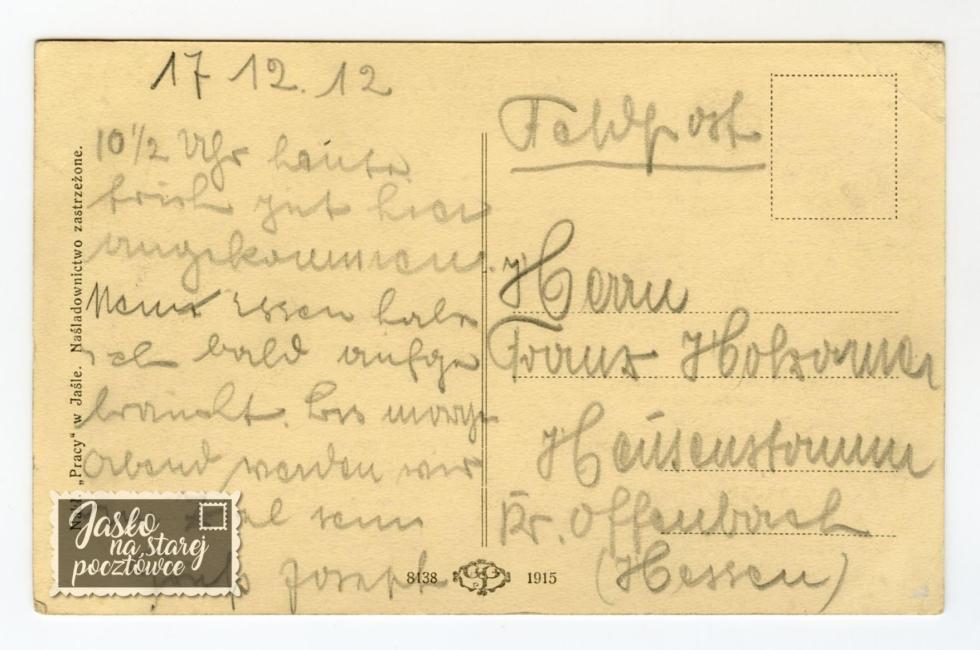 17 12. 12
10 1/2 Uhr heute
früh gut hier
angekommen.
Mein Essen habe
ich bald aufge
braucht. Bis morgen
Abend werden wir
sein
Joseph
Feldpost
Herrn
Franz
Heusenstamm
Kr. Offenbach
(Hessen)
„Pracy“ w Jaśle. Naśladownictwo zastrzeżone.
8138 1915
Jasło
na starej
pocztówce